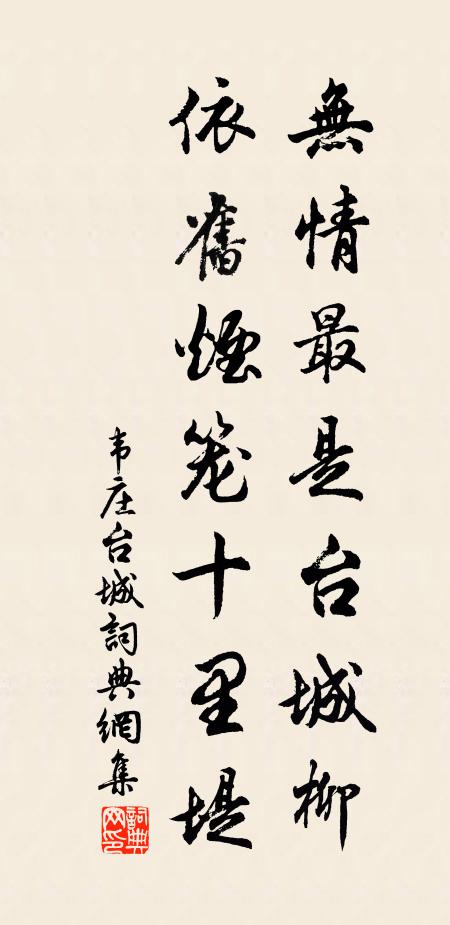 無情最是台城柳
依舊煙笼十里堤
韦庄台城詞典網集
詞典网印